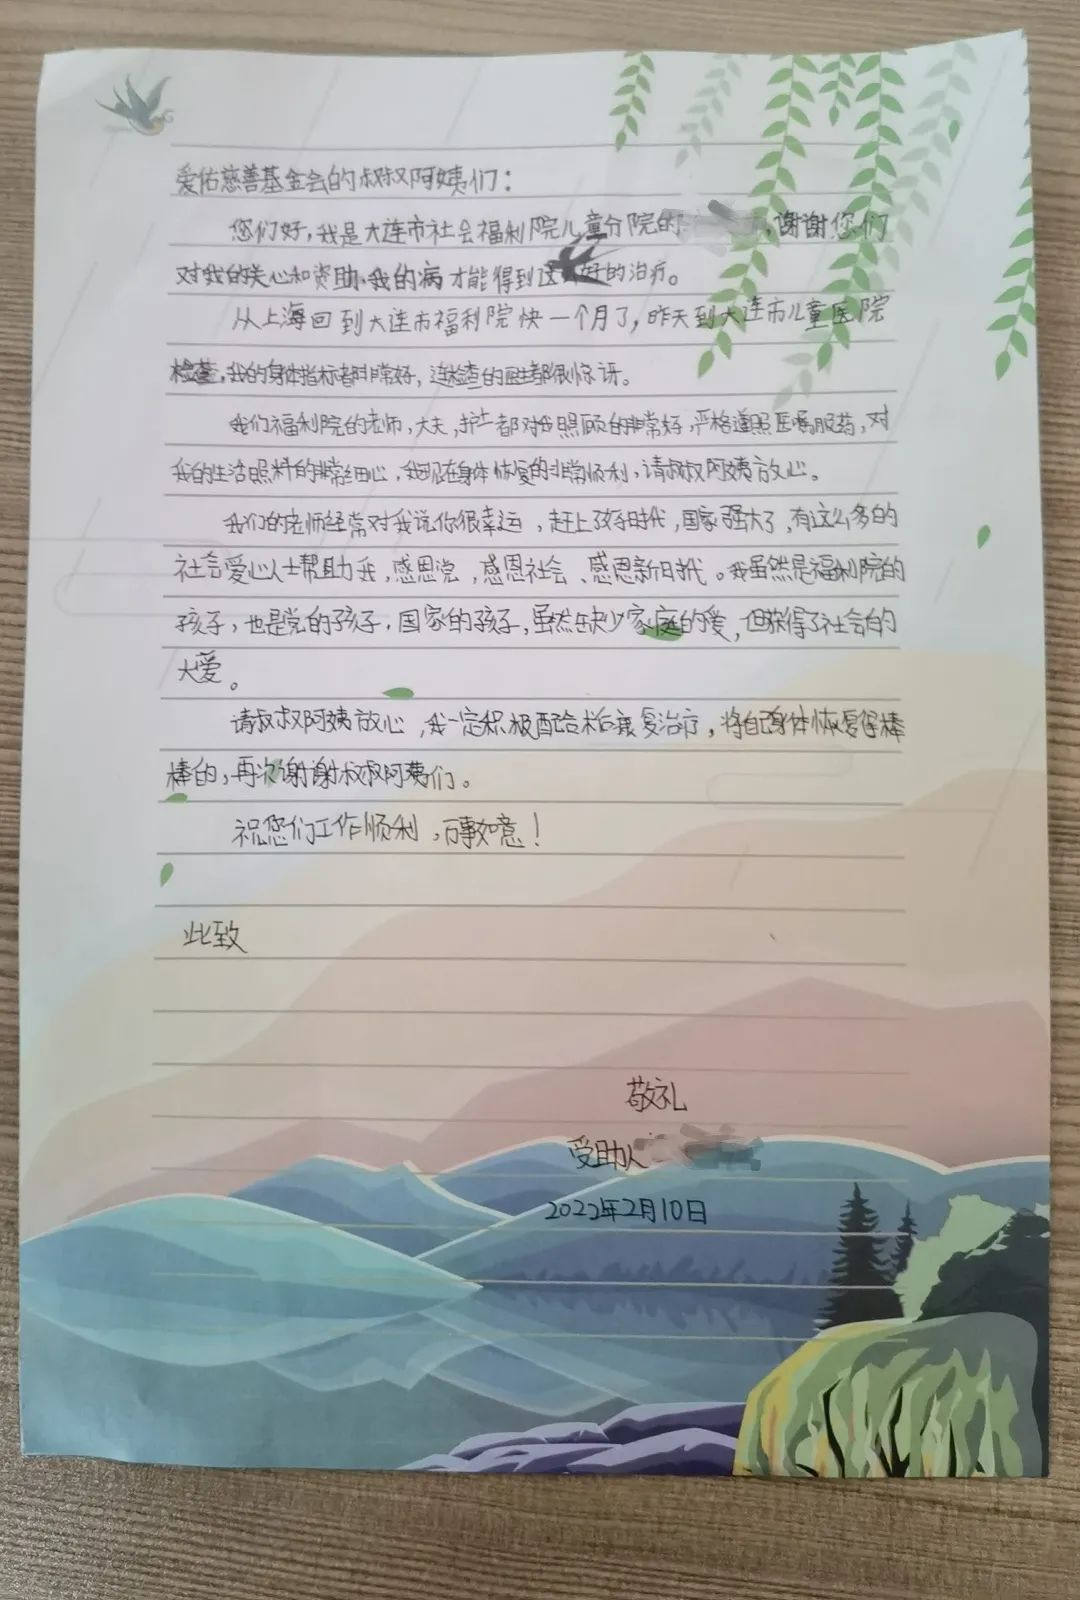 爱佑慈善基金会的叔叔阿姨们：
您们好，我是大连市社会福利院儿童分院的，谢谢您们
对我的关心和资助，我的病才能得到这好的治疗。
从上海回到大连市福利院快一个月了，昨天到大连市儿童医院
检查，我的身体指标都非常好，连检查的医生都很惊讶。
我们福利院的老师，大夫，护士都对我照顾的非常好，严格遵照医嘱服药，对
我的生活照料的非常细心，我现在身体恢复的非常顺利，请叔叔阿姨放心。
我们的老师经常对我说你很幸运，赶上了好时代，国家强大了，有这么多的
社会爱心人士帮助我，感恩党，感恩社会、感恩新时代。我虽然是福利院的
孩子，也是党的孩子，国家的孩子，虽然缺少家庭的爱，但获得了社会的
大爱。
请叔叔阿姨放心，我一定积极配合术后康复治疗，将自己身体恢复得棒
棒的，再次谢谢叔叔阿姨们。
祝您们工作顺利，万事如意！
此致
敬礼
受助人
2022年2月10日